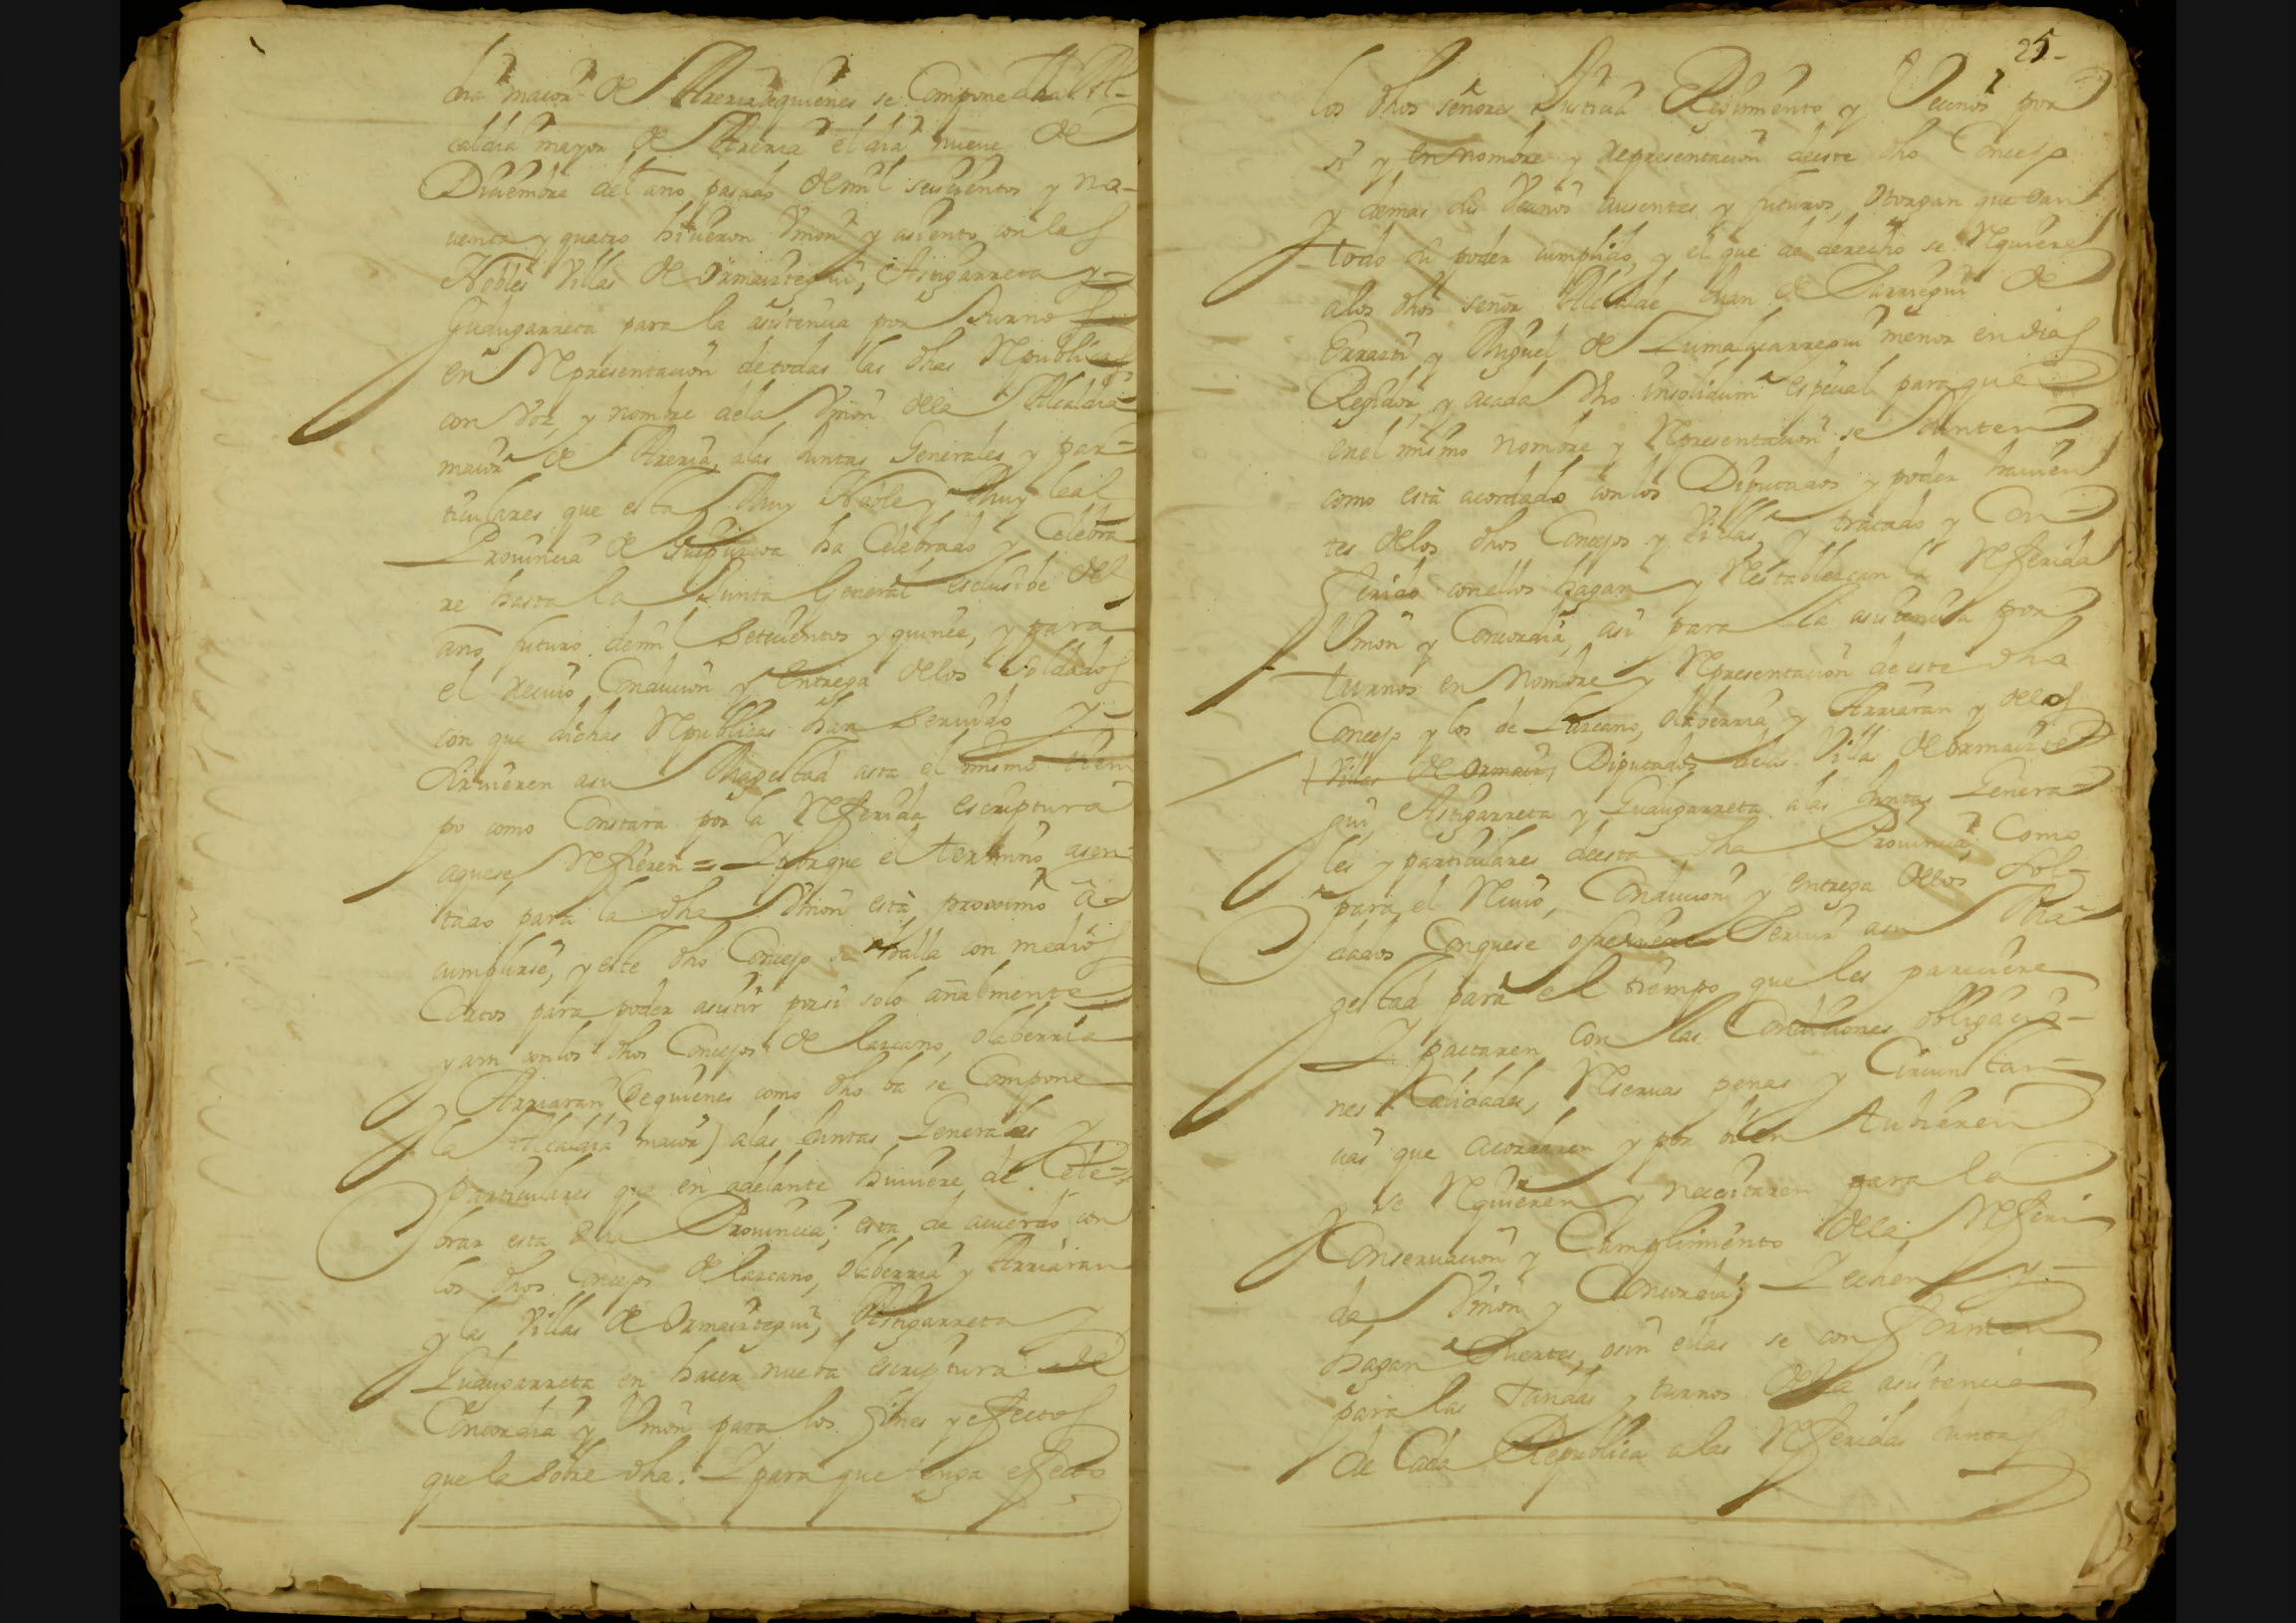 dia maior de Areria, quienes se Compone dha Al-
caldia mayor de Areria el dia nueue de
Diciembre del año pasado de mil seiscientos y no-
uenta y quatro hicieron Vnion y asiento con las
Nobles Villas de Ormaiztegui, Astigarreta y
Gudugarreta para la asistencia por turnos
en Representacion de todas las dhas Republicas
con Voz y nombre de la Vnion de la Alcaldia
maior de Areria, a las Juntas Generales y par-
ticulares que esta Muy Noble y Muy leal
Prouincia de Guipuzcoa ha Celebrado y Celebra
re hasta la Junta General esclusibe del
año futuro de mil Setecientos y quince, y para
el Recivo, Conducion y entrega de los Soldados
con que dichas Republicas han seruido y
siruieren a su Magestad asta el mismo tiem
po como Constara por la Referida escriptura
aquese Refieren = Y porque el termino asen-
tado para la dha Vnion està proximo â
cumplirse, y este dho Concejo se halla con medios
Cortos para poder asistir por si solo añalmente
y aun con los dhos Concejos de lazcano, olaberria
y Arriaran (de quienes como dho ba se Compone
la Alcaldia maior) a las Juntas Generales y
particulares que en adelante huuiere de Cele-
brar esta dha Prouincia; esta de acuerdo con
los dhos Concejos de lazcano, olaberria y Arriaran
y las Villas de Ormaiztegui, Astigarreta y
Gudugarreta en hacer nueba escriptura de
Concordia y Vnion para los fines y efectos
que la sobre dha. Y para que tenga efecto
25-
los dhos señores Justicia Regimiento y Vecinos por
si y en nombre y representacion de este dho Concejo
y demas sus Vecinos ausentes y futuros, otorgan que dan
todo su poder cumplido, y el que de derecho se Requiere
a los dhos señor Alcalde Juan de Jauregui de
Errasti y Miguel de Zumalacarregui menor en dias
Regidor, y acada Vno insolidum especial para que
en el mismo nombre y Representacion se Junten
como està acordado con los Diputados y poder hauien
tes de los dhos Concejos y Villas, y tratado y Con-
ferido con ellos hagan y Restablezcan la Referida
Vnion y Concordia, asi para la asistencia por
turnos en Nombre y Representacion de este dho
Concejo y los de Lazcano, olaberria y Arriaran y de los
Villas de Ormaiz, Diputados de las Villas de Ormaizte
gui, Astigarreta y Gudugarreta a las Juntas Genera-
les y particulares de esta dha Prouincia, Como
para el Reciuo, Conducion y entrega de los Sol-
dados Conquese ofrecieren Seruir a su Ma-
gestad para el tiempo que les pareciere
Y pactaren, con las Condiciones obligacio-
nes Calidades, Reseruas penas y Circunstan-
cias que acordaren y por bien tubieren
y se Requieren y necesitaren para la
Conseruacion y Cumplimiento de la Referi
da Vnion y Concordia; Y echen y
hagan Suertes, o sin ellas se conformen
para las tandas y turnos de la asistencia
de Cada Republica a las Referidas Juntas